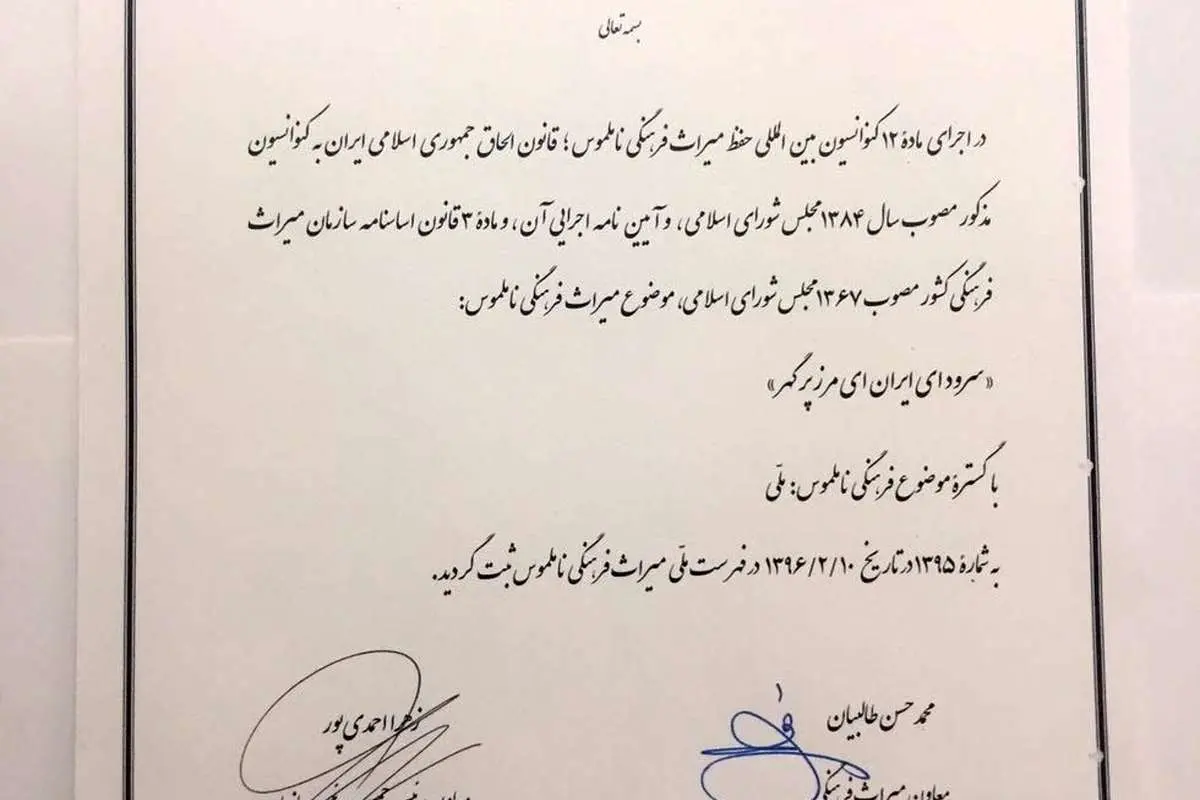 بسمه تعالی
در اجرای مادهٔ ۱۲ کنوانسیون بین المللی حفظ میراث فرهنگی ناملموس؛ قانون الحاق جمهوری اسلامی ایران به کنوانسیون
مذکور مصوب سال ۱۳۸۴ مجلس شورای اسلامی، و آیین نامه اجرایی آن، و مادهٔ ۳ قانون اساسنامه سازمان میراث
فرهنگی کشور مصوب ۱۳۶۷ مجلس شورای اسلامی، موضوع میراث فرهنگی ناملموس:
«سرود ای ایران ای مرز پر گهر»
با گسترهٔ موضوع فرهنگی ناملموس: ملّی
به شمارهٔ ۱۳۹۵ در تاریخ ۱۳۹۶/۲/۱۰ در فهرست ملّی میراث فرهنگی ناملموس ثبت گردید.
محمد حسن طالبیان
زهرا احمدی پور
معاون میراث فرهنگی